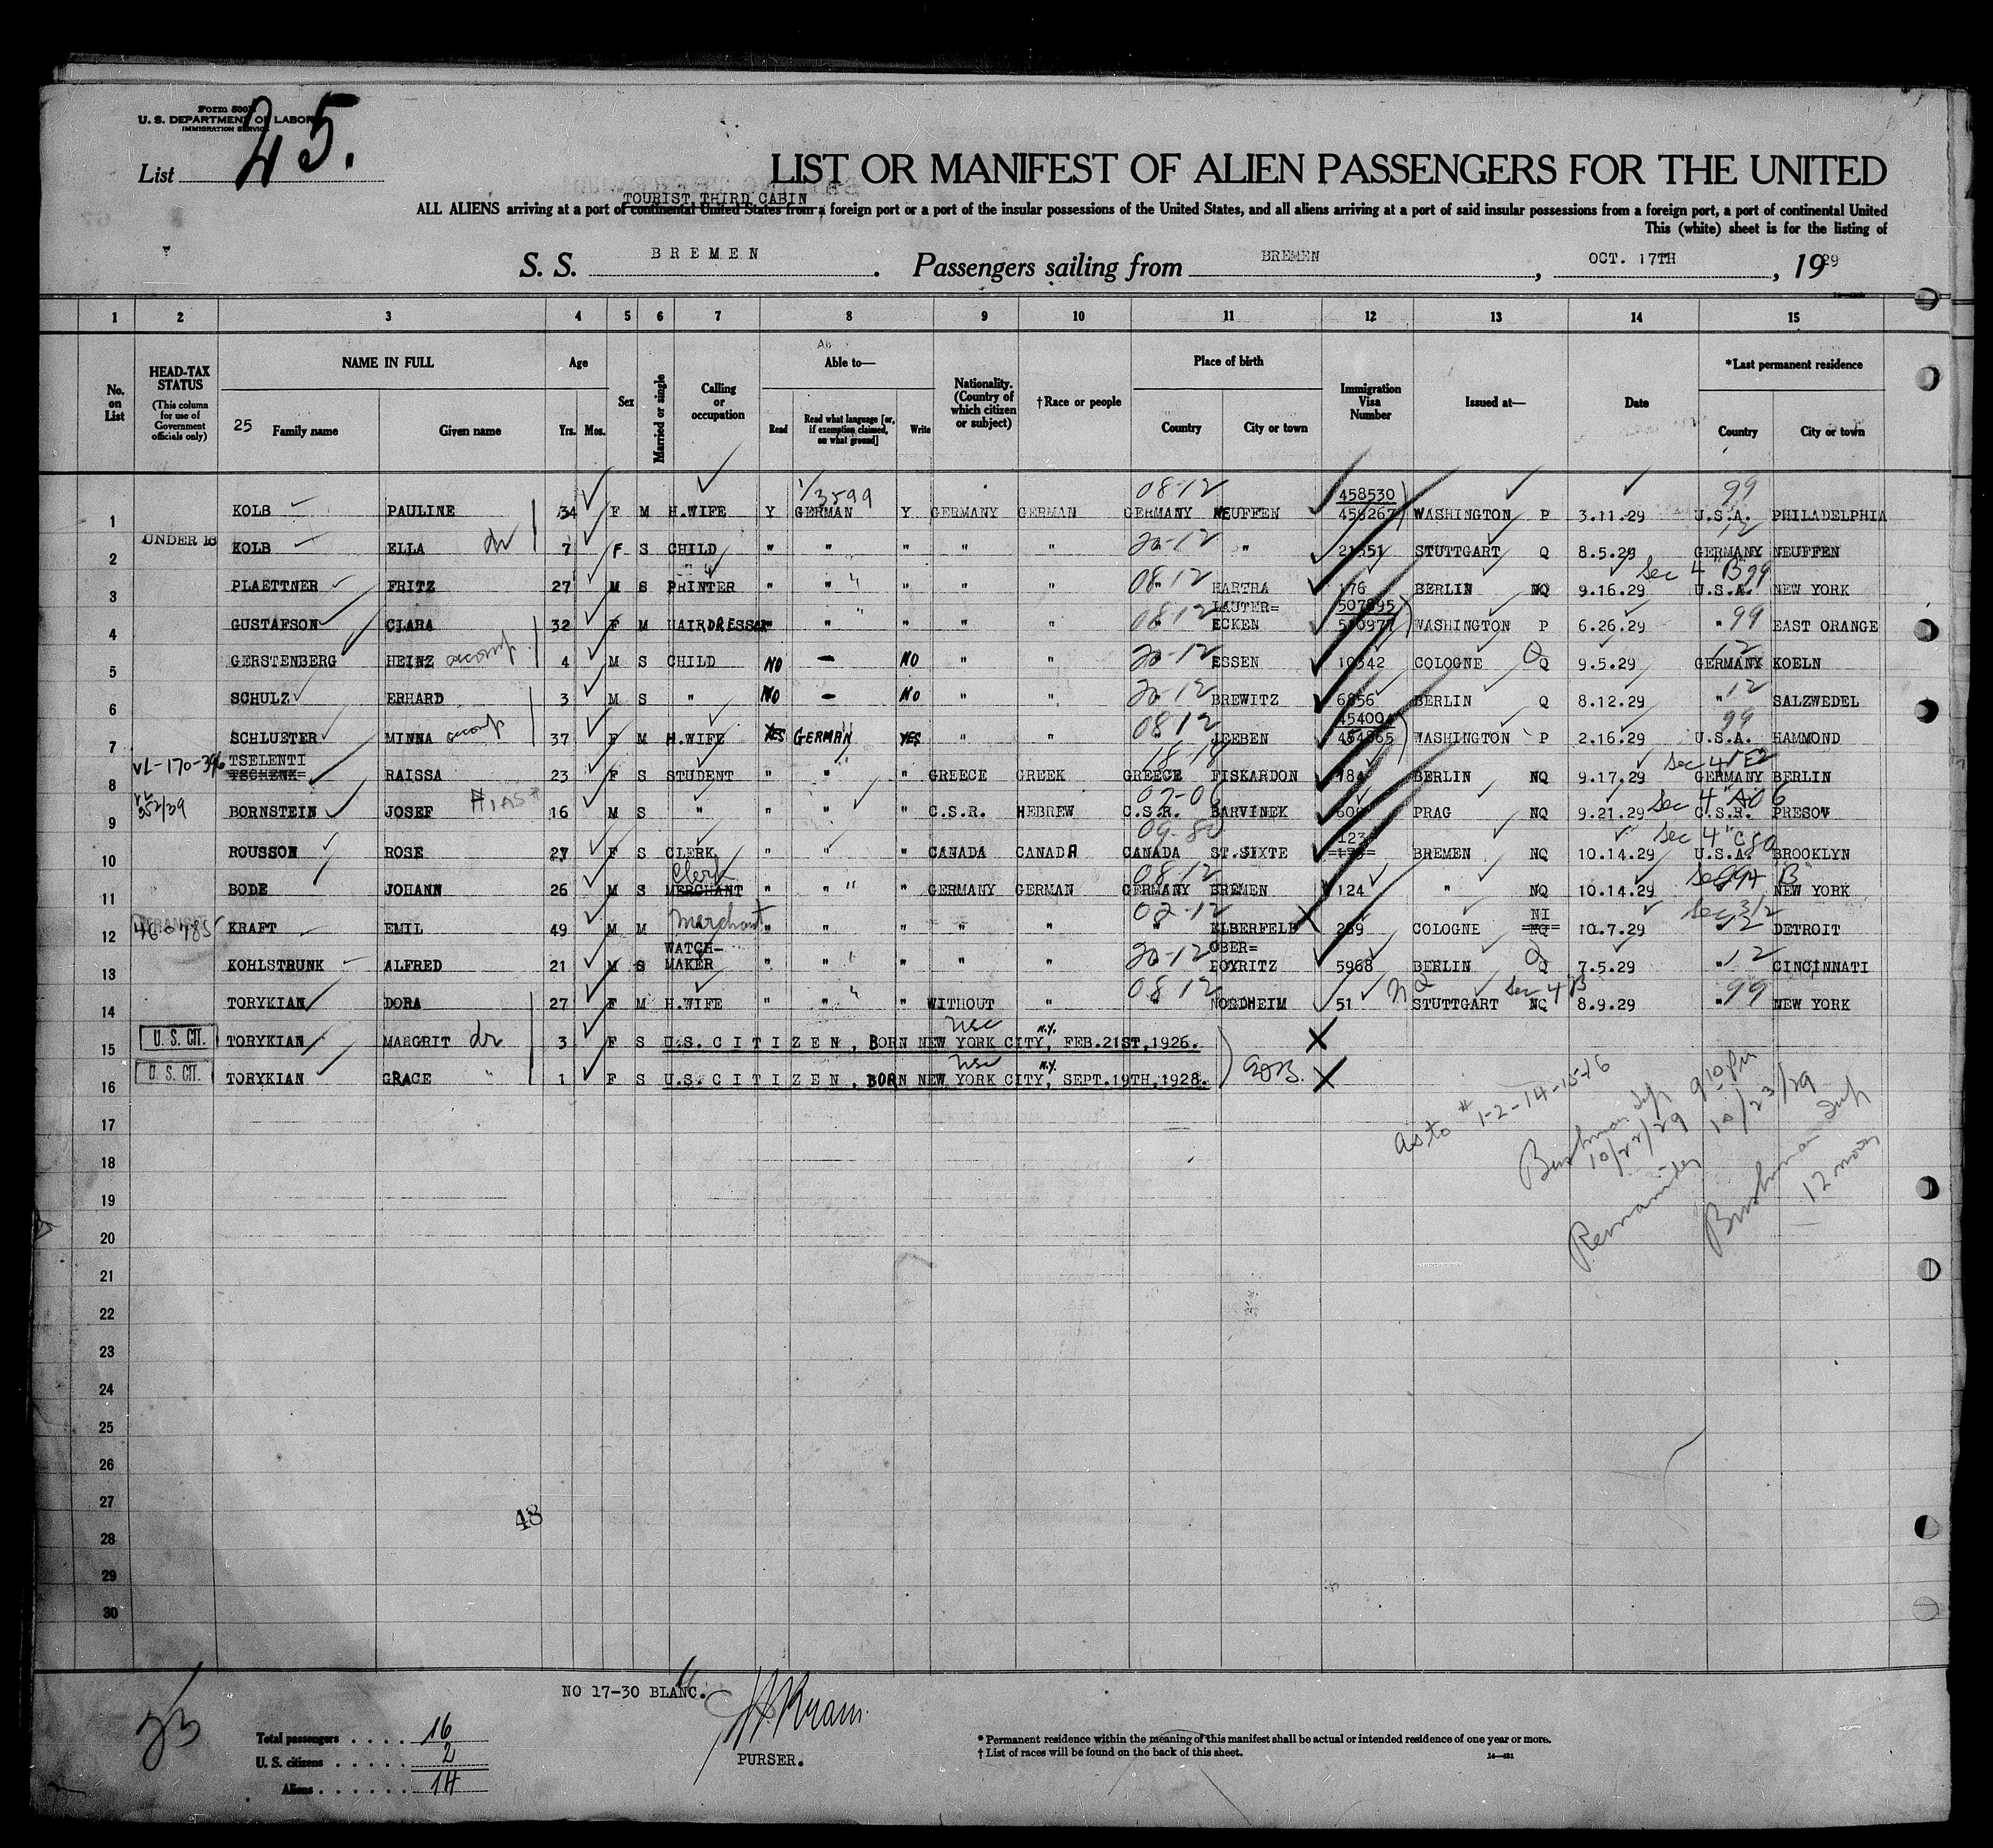 Form 500
U. S. DEPARTMENT OF LABOR
IMMIGRATION SERVICE
List 25.
LIST OR MANIFEST OF ALIEN PASSENGERS FOR THE UNITED
TOURIST THIRD CABIN
ALL ALIENS arriving at a port of continental United States from a foreign port or a port of the insular possessions of the United States, and all aliens arriving at a port of said insular possessions from a foreign port, a port of continental United
This (white) sheet is for the listing of
S. S. BREMEN. Passengers sailing from BREMEN, OCT. 17TH, 1929
1 2 3 4 5 6 7 8 9 10 11 12 13 14 15
No. on List
HEAD-TAX STATUS (This column for use of Government officials only)
NAME IN FULL
25 Family name Given name
Age Yrs. Mos.
Sex
Married or single
Calling or occupation
Able to—
Read Read what language [or, if exemption claimed, on what ground] Write
Nationality. (Country of which citizen or subject)
†Race or people
Place of birth
Country City or town
Immigration Visa Number
Issued at—
Date
*Last permanent residence
Country City or town
1/3599 08-12 458530 99
1 KOLB PAULINE 34 F M H.WIFE Y GERMAN Y GERMANY GERMAN GERMANY NEUFFEN 458267 WASHINGTON P 3.11.29 U.S.A. PHILADELPHIA
2 UNDER 16 KOLB ELLA dr 7 F S CHILD " " " " " 20-12 " 21551 STUTTGART Q 8.5.29 12 GERMANY NEUFFEN
3 PLAETTNER FRITZ 27 M S PRINTER " " " " " 08-12 HARTHA 176 BERLIN NQ 9.16.29 Sec 4 "B" 99 U.S.A. NEW YORK
4 GUSTAFSON CLARA 32 F M HAIRDRESSER " " " " " 08-12 LAUTER= ECKEN 507895 WASHINGTON P 6.26.29 " 99 EAST ORANGE
5 GERSTENBERG HEINZ accomp 4 M S CHILD NO — NO " " 20-12 ESSEN 10542 COLOGNE Q 9.5.29 12 GERMANY KOELN
6 SCHULZ ERHARD 3 M S " NO — NO " " 20-12 BREWITZ 6856 BERLIN Q 8.12.29 " 12 SALZWEDEL
7 SCHLUETER MINNA accomp 37 F M H.WIFE YES GERMAN YES " " 08-12 JEEBEN WASHINGTON P 2.16.29 99 U.S.A. HAMMOND
8 VL-170-396 TSELENTI TSCHENK= RAISSA 23 F S STUDENT " " " GREECE GREEK 18-18 GREECE FISKARDON 184 BERLIN NQ 9.17.29 Sec 4 "E2 GERMANY BERLIN
9 VL 352/39 BORNSTEIN JOSEF HIAS 16 M S " " " " C.S.R. HEBREW 07-06 C.S.R. BARVINEK BARVINEK PRAG NQ 9.21.29 Sec 4 C.S.R. PRESOV
10 ROUSSON ROSE 27 F S CLERK " " " CANADA CANADA 09-80 CANADA ST.SIXTE 123 BREMEN NQ 10.14.29 Sec 4 "C 80 U.S.A. BROOKLYN
11 BODE JOHANN 26 M S Clerk MERCHANT " " " GERMANY GERMAN 08-12 GERMANY BREMEN 124 " NQ 10.14.29 NEW YORK
12 TRANSIT KRAFT EMIL 49 M M Merchant " " " " " 02-12 " ELBERFELD 259 COLOGNE NI NQ 10.7.29 Sec 3/2 12 DETROIT
13 KOHLSTRUNK ALFRED 21 M S WATCH-MAKER " " " " " 20-12 OBER= POYRITZ 5968 BERLIN Q 7.5.29 " 12 CINCINNATI
14 TORYKIAN DORA 27 F M H.WIFE " " " WITHOUT " 08-12 NORDHEIM 51 NQ STUTTGART Sec 4 B NQ 8.9.29 " 99 NEW YORK
15 U. S. CIT. TORYKIAN MARGRIT dr 3 F S U.S. CITIZEN, BORN NEW YORK CITY, N.Y. FEB.21ST,1926. usc
16 U. S. CIT. TORYKIAN GRACE " 1 F S U.S. CITIZEN, BORN NEW YORK CITY, N.Y. SEPT.19TH,1928. usc
17
as to # 1-2-14-15-16
18
Bushman Sup 10/22/29 9 10 pm
19
Remainder 10/23/29
20
Bushman Sup 12 noon
21
22
23
24
25
26
27
48
28
29
30
NO 17-30 BLANC.
PURSER.
Total passengers . . . . 16
U. S. citizens . . . . . 2
Aliens . . . . . . 14
* Permanent residence within the meaning of this manifest shall be actual or intended residence of one year or more.
† List of races will be found on the back of this sheet.